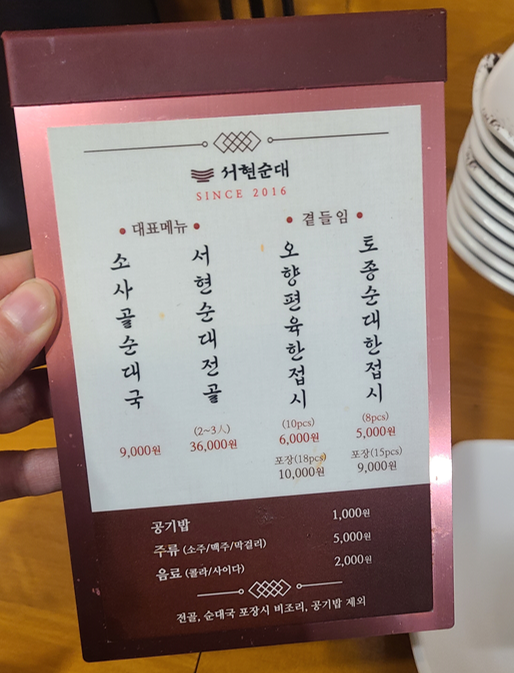 서현순대
SINCE 2016
대표메뉴
소사골순대국
9,000원
서현순대전골
(2~3人)
36,000원
곁들임
오향편육한접시
(10pcs)
6,000원
포장(18pcs)
10,000원
토종순대한접시
(8pcs)
5,000원
포장(15pcs)
9,000원
공기밥 1,000원
주류 (소주/맥주/막걸리) 5,000원
음료 (콜라/사이다) 2,000원
전골, 순대국 포장시 비조리, 공기밥 제외